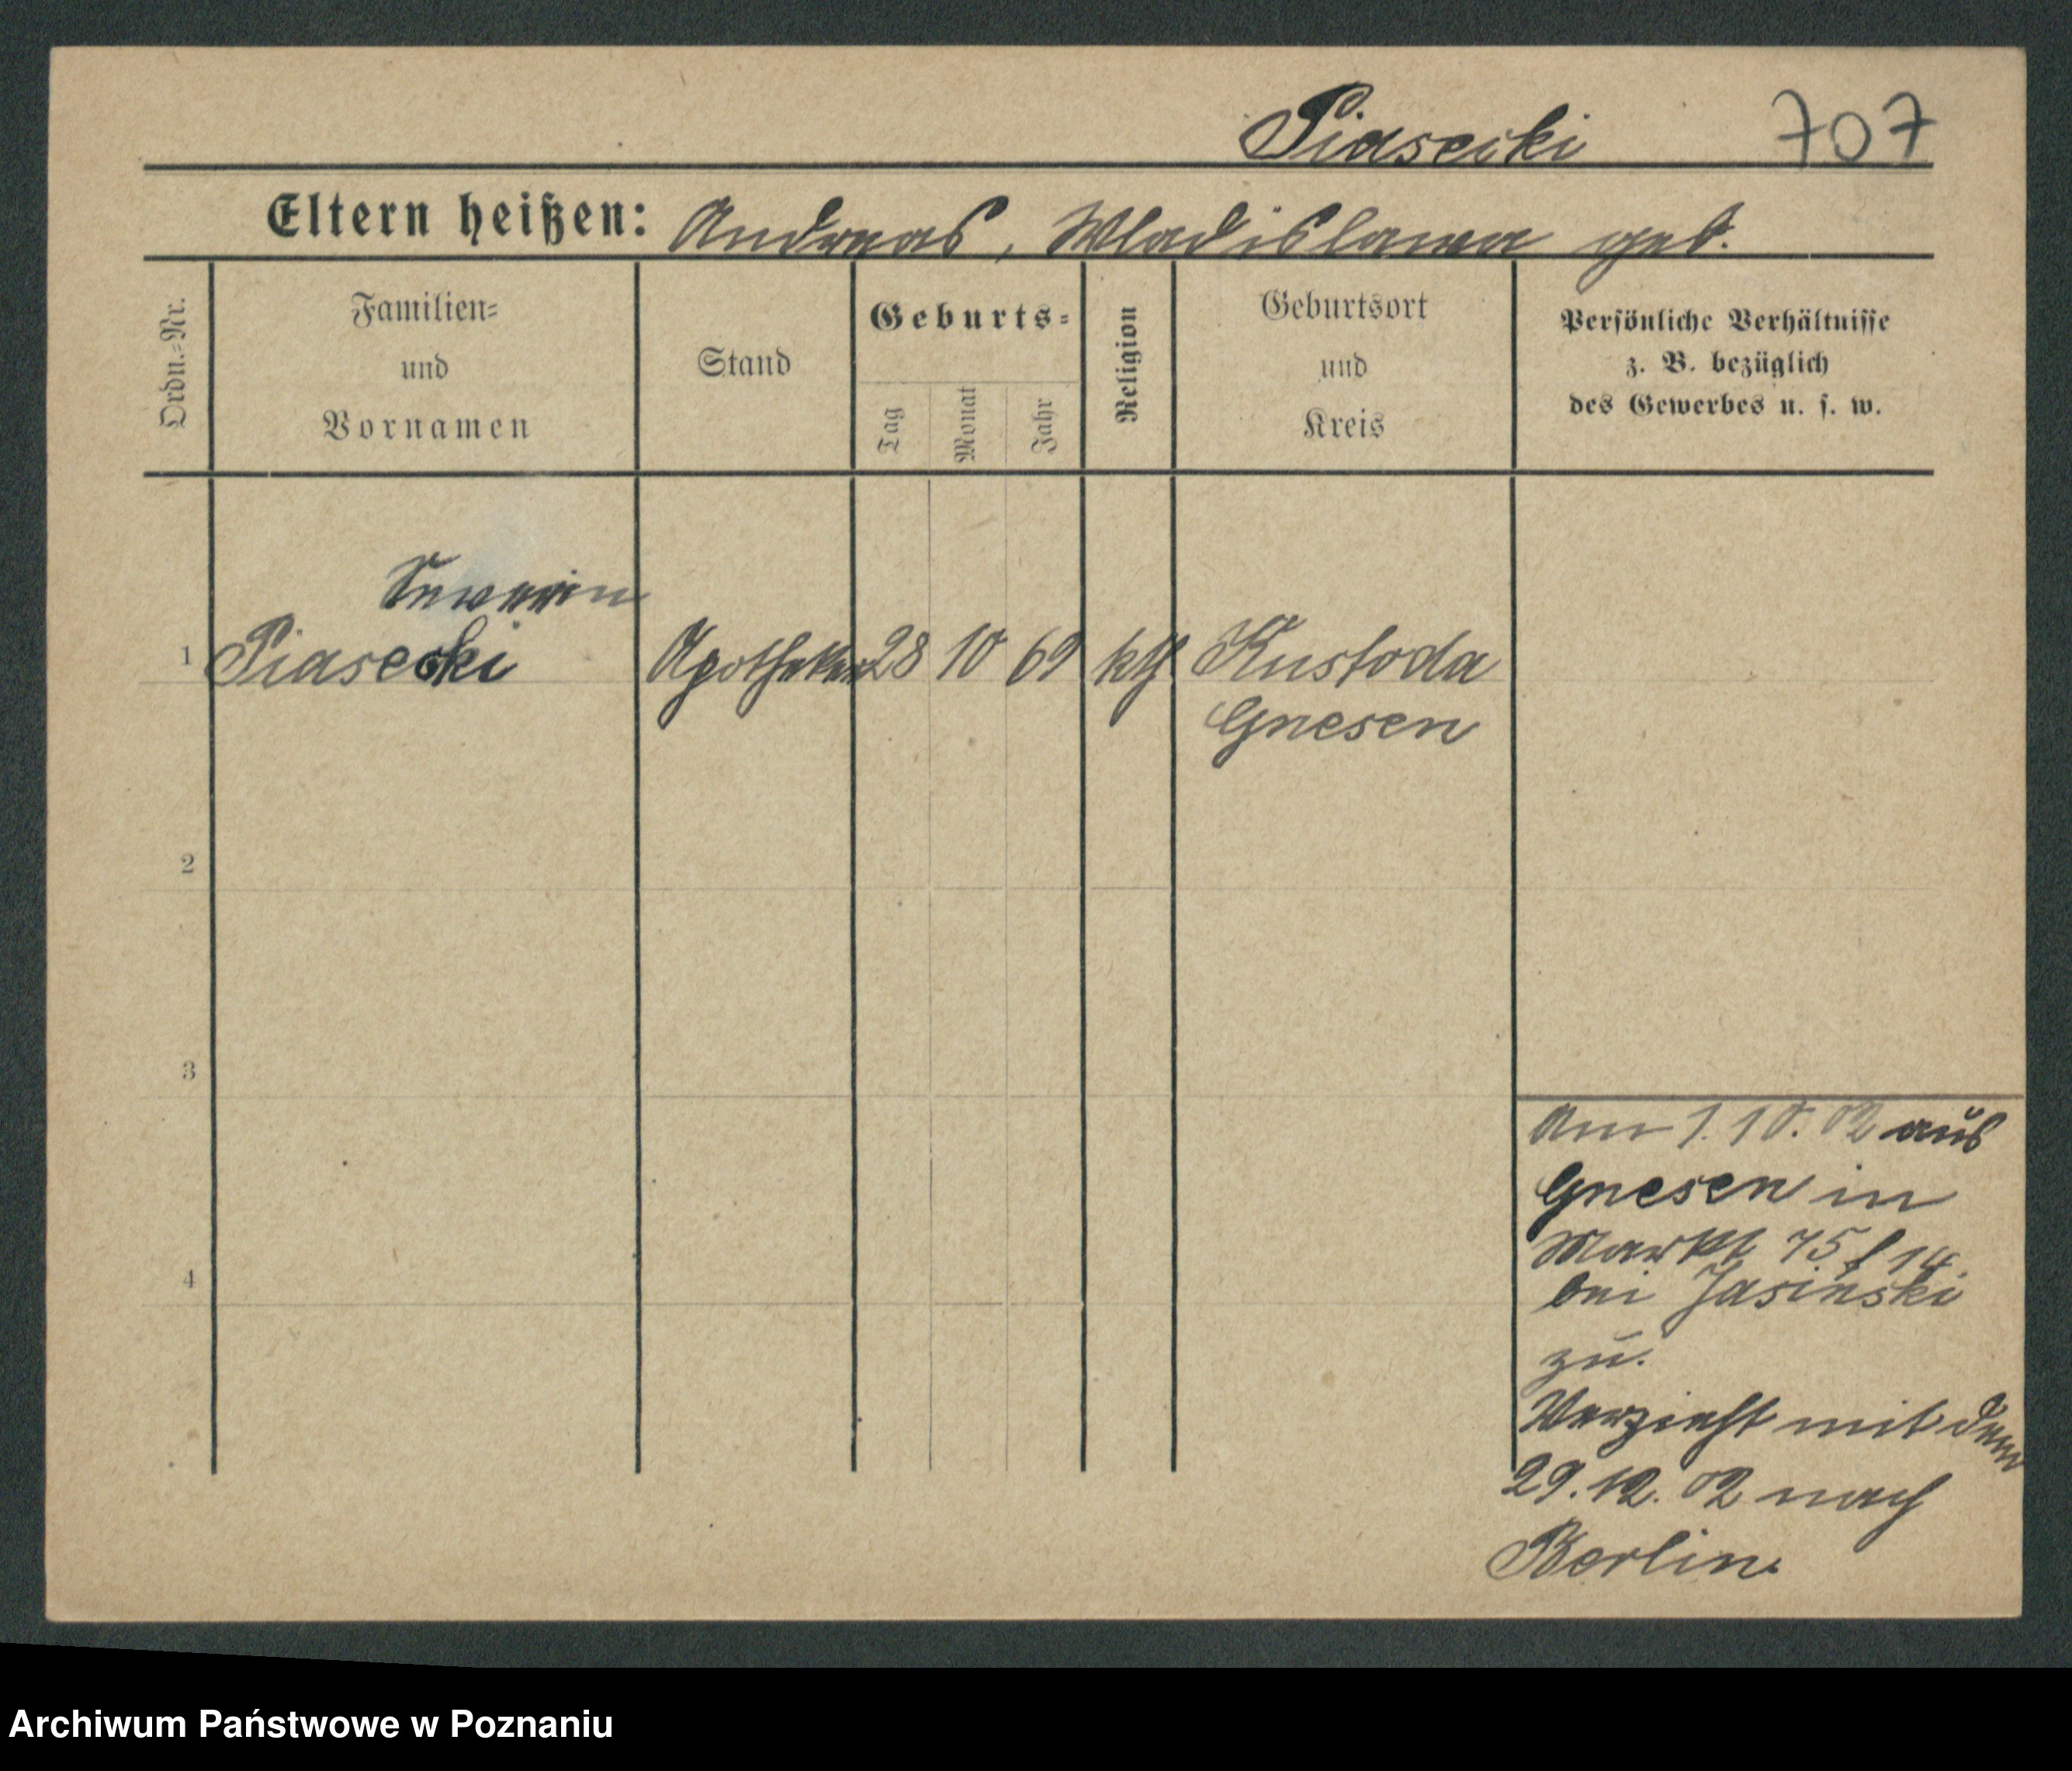 Piasecki 707
Eltern heißen: Andreas, Wladislawa geb.
Ordn.=Nr.
Familien=
und
Vornamen
Stand
Geburts=
Tag
Monat
Jahr
Religion
Geburtsort
und
Kreis
Persönliche Verhältnisse
z. B. bezüglich
des Gewerbes u. s. w.
Severin
1 Piasecki Apotheker 28 10 69 kth Kustoda
Gnesen
2
3
4
Am 1.10.02 aus
Gnesen in
Markt 75 14.
bei Jasinski
zu.
Verzieht mit dem
29.12.02 nach
Berlin.
Archiwum Państwowe w Poznaniu